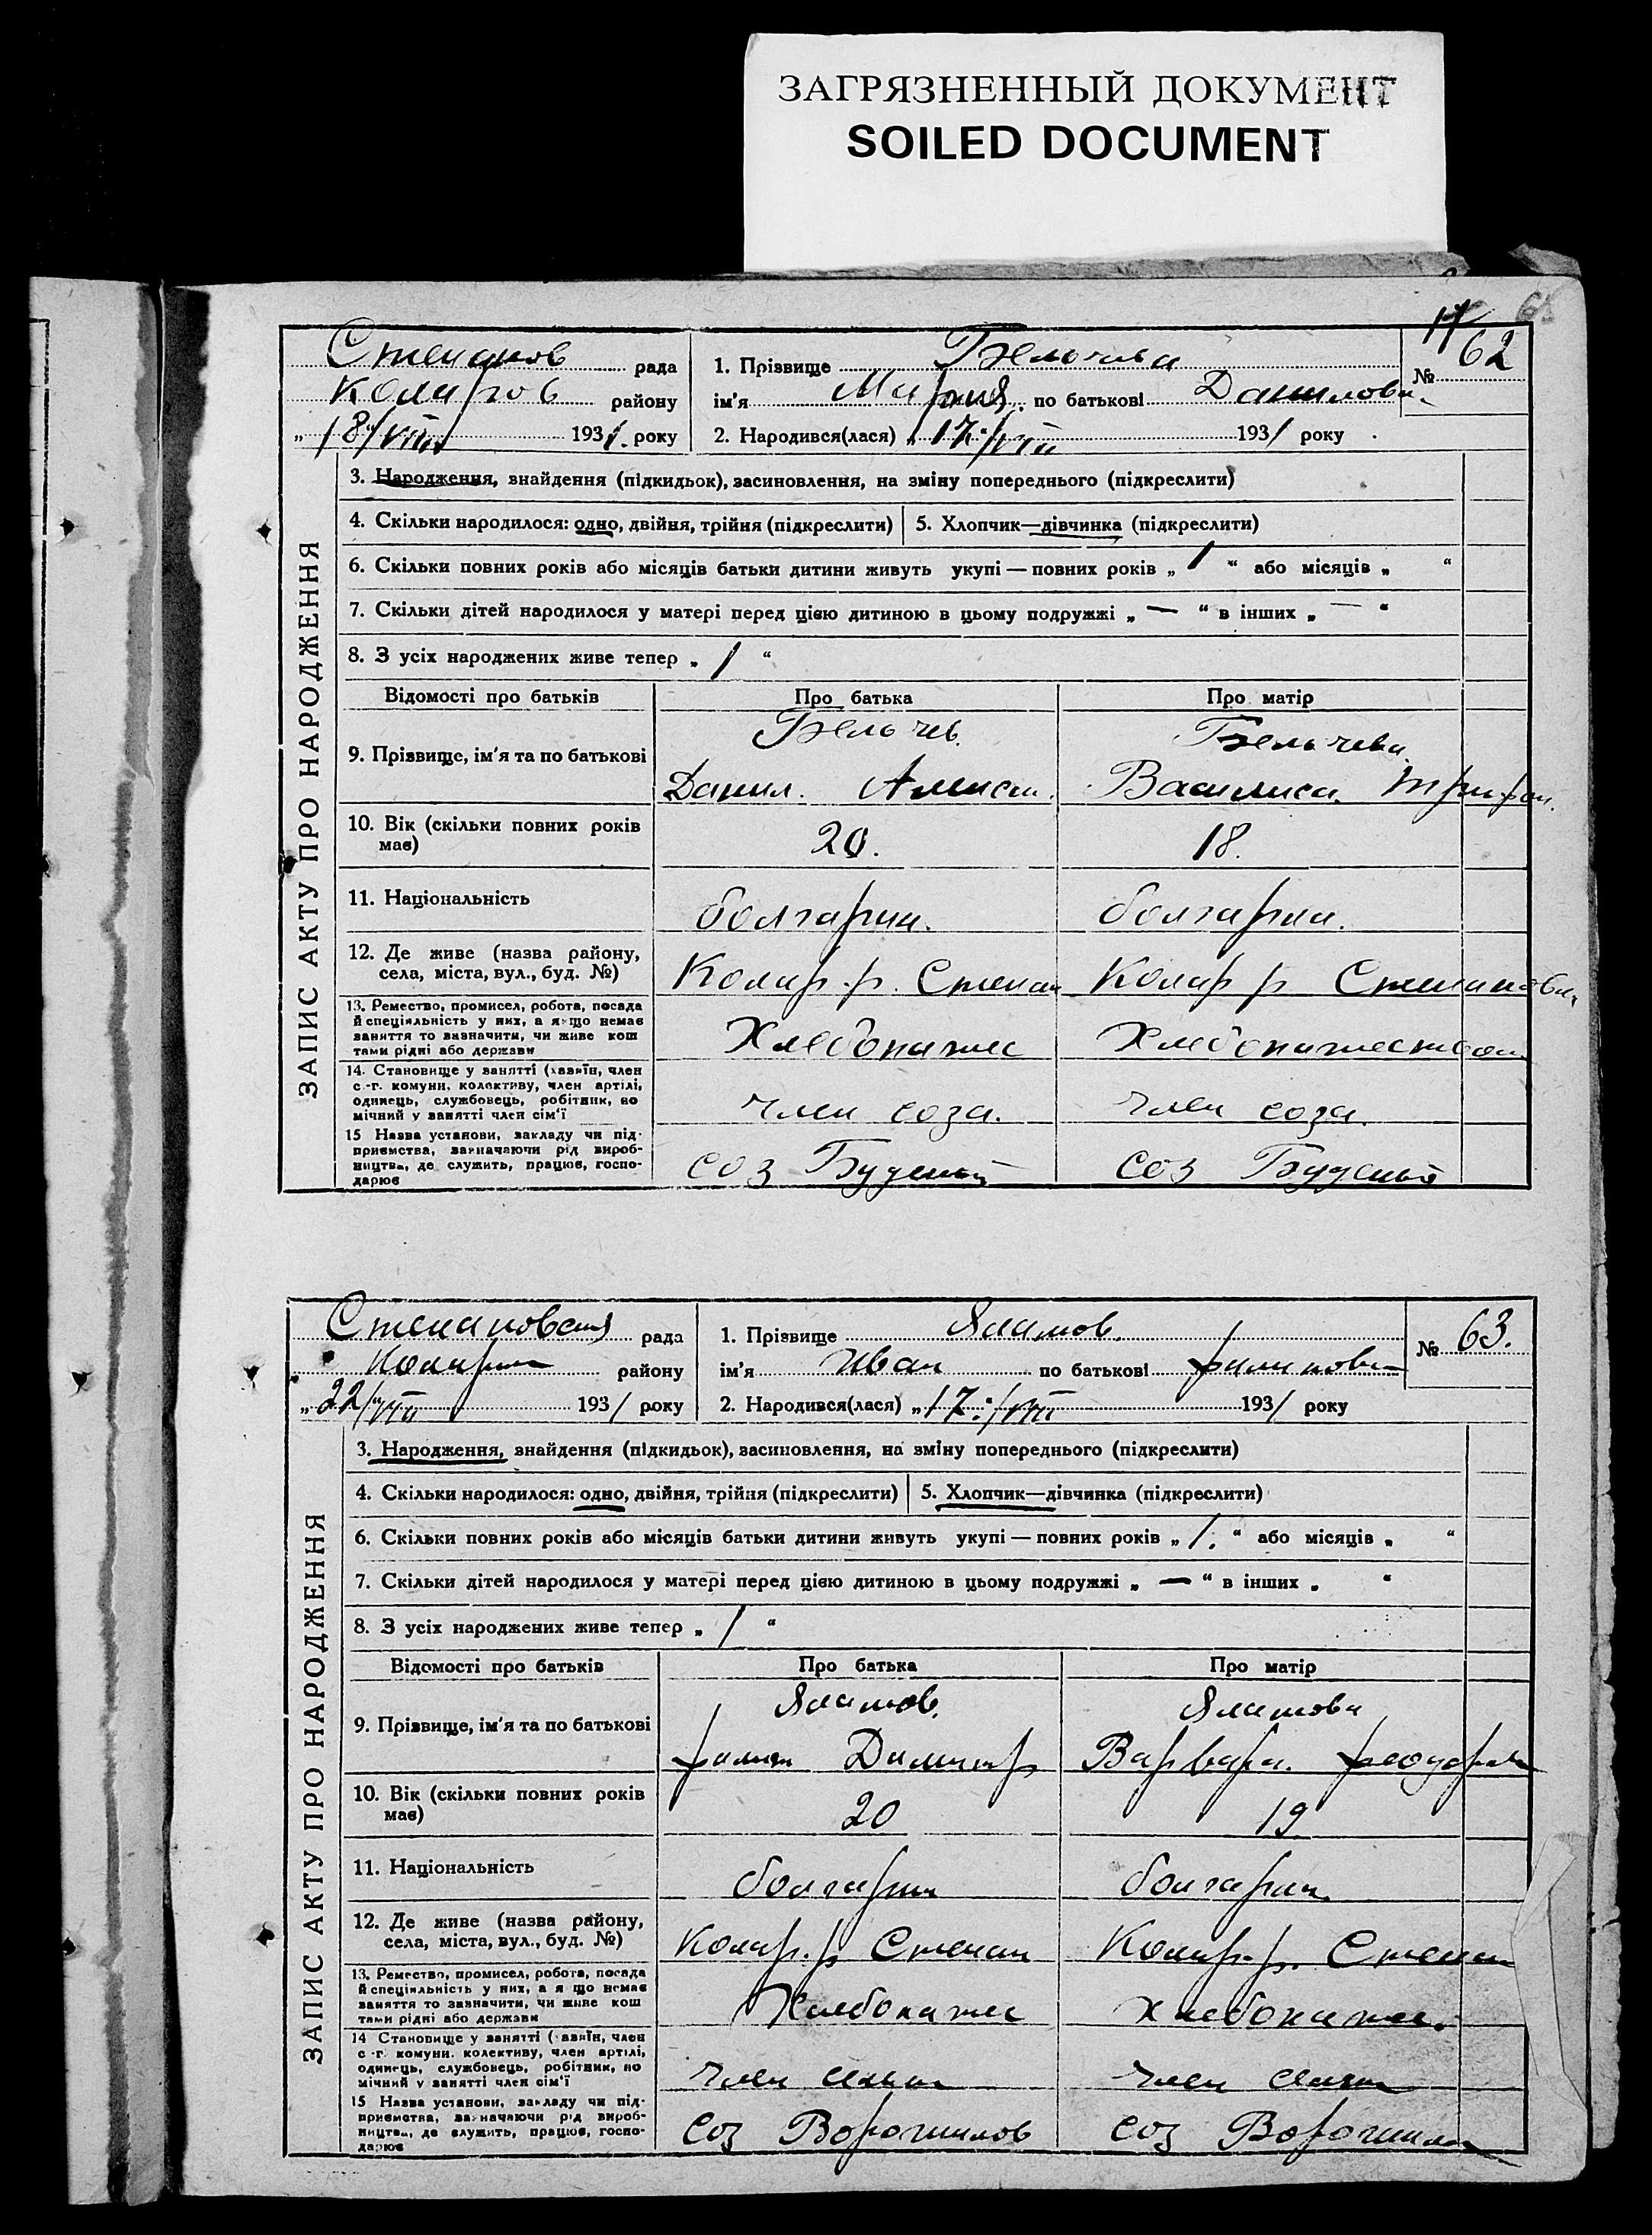 ЗАГРЯЗНЕННЫЙ ДОКУМЕНТ
SOILED DOCUMENT
Степанов рада
Коларов району
„18/VIII 1931. року
1. Прізвище Бельчева
ім'я Мария по батькові Даниловн.
2. Народився(лася) „17/VIII 1931 року
№ 62
ЗАПИС АКТУ ПРО НАРОДЖЕННЯ
3. Народження, знайдення (підкидьок), засиновлення, на зміну попереднього (підкреслити)
4. Скільки народилося: одно, двійня, трійня (підкреслити) 5. Хлопчик—дівчинка (підкреслити)
6. Скільки повних років або місяців батьки дитини живуть укупі — повних років „ 1 “ або місяців „ “
7. Скільки дітей народилося у матері перед цією дитиною в цьому подружжі „ — “ в інших „ — “
8. З усіх народжених живе тепер „ 1 “
Відомості про батьків Про батька Про матір
9. Прізвище, ім'я та по батькові
Бельчев. Бельчева
Данил. Алексе. Василиса Трифон.
10. Вік (скільки повних років
має)
20. 18.
11. Національність
болгарин. болгарка.
12. Де живе (назва району,
села, міста, вул., буд. №)
Колар. р. Степан Колар р Степановка
13. Ремество, промисел, робота, посада
й спеціяльність у них, а якщо немає
заняття то зазначити, чи живе кош
тами рідні або держави
Хлебопашес Хлебопашеством
14. Становище у занятті (хазяїн, член
с.-г. комуни, колективу, член артілі,
одинець, службовець, робітник, по
мічний у занятті член сім'ї
член соза. член соза.
15 Назва установи, закладу чи під-
приємства, зазначаючи рід вироб-
ництва, де служить, працює, госпо-
дарює
соз Буденый соз Буденый
Степановская рада
Коларов району
„22/VIII 1931 року
1. Прізвище Яламов.
ім'я Иван по батькові филипови
2. Народився(лася) „17/VIII 1931 року
№ 63.
ЗАПИС АКТУ ПРО НАРОДЖЕННЯ
3. Народження, знайдення (підкидьок), засиновлення, на зміну попереднього (підкреслити)
4. Скільки народилося: одно, двійня, трійня (підкреслити) 5. Хлопчик—дівчинка (підкреслити)
6. Скільки повних років або місяців батьки дитини живуть укупі — повних років „ 1. “ або місяців „ “
7. Скільки дітей народилося у матері перед цією дитиною в цьому подружжі „ — “ в інших „ “
8. З усіх народжених живе тепер „ 1 “
Відомості про батьків Про батька Про матір
9. Прізвище, ім'я та по батькові
Яламов. Яламова
филип Димитр Варвара. феодоров
10. Вік (скільки повних років
має)
20 19
11. Національність
болгарин болгарка
12. Де живе (назва району,
села, міста, вул., буд. №)
Колар. р Степан Колар. р. Степан
13. Ремество, промисел, робота, посада
й спеціяльність у них, а якщо немає
заняття то зазначити, чи живе кош
тами рідні або держави
Хлебопашес хлебопашес.
14 Становище у занятті (хазяїн, член
с.-г. комуни, колективу, член артілі,
одинець, службовець, робітник, по
мічний у занятті член сім'ї
член член
15 Назва установи, закладу чи під-
приємства, зазначаючи рід вироб-
ництва, де служить, працює, госпо-
дарює
Соз Ворошилов соз Ворошилов